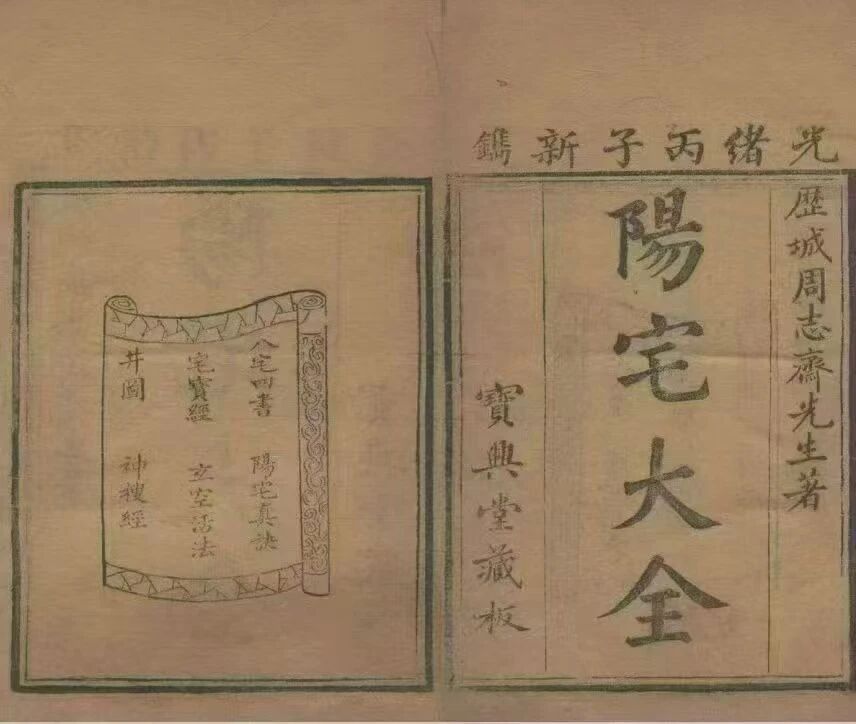 光緒丙子新鐫
歴城周志齋先生著
陽宅大全
寶興堂藏板
八宅四書 陽宅真訣
宅寶經 玄空活法
井圖 神搜經